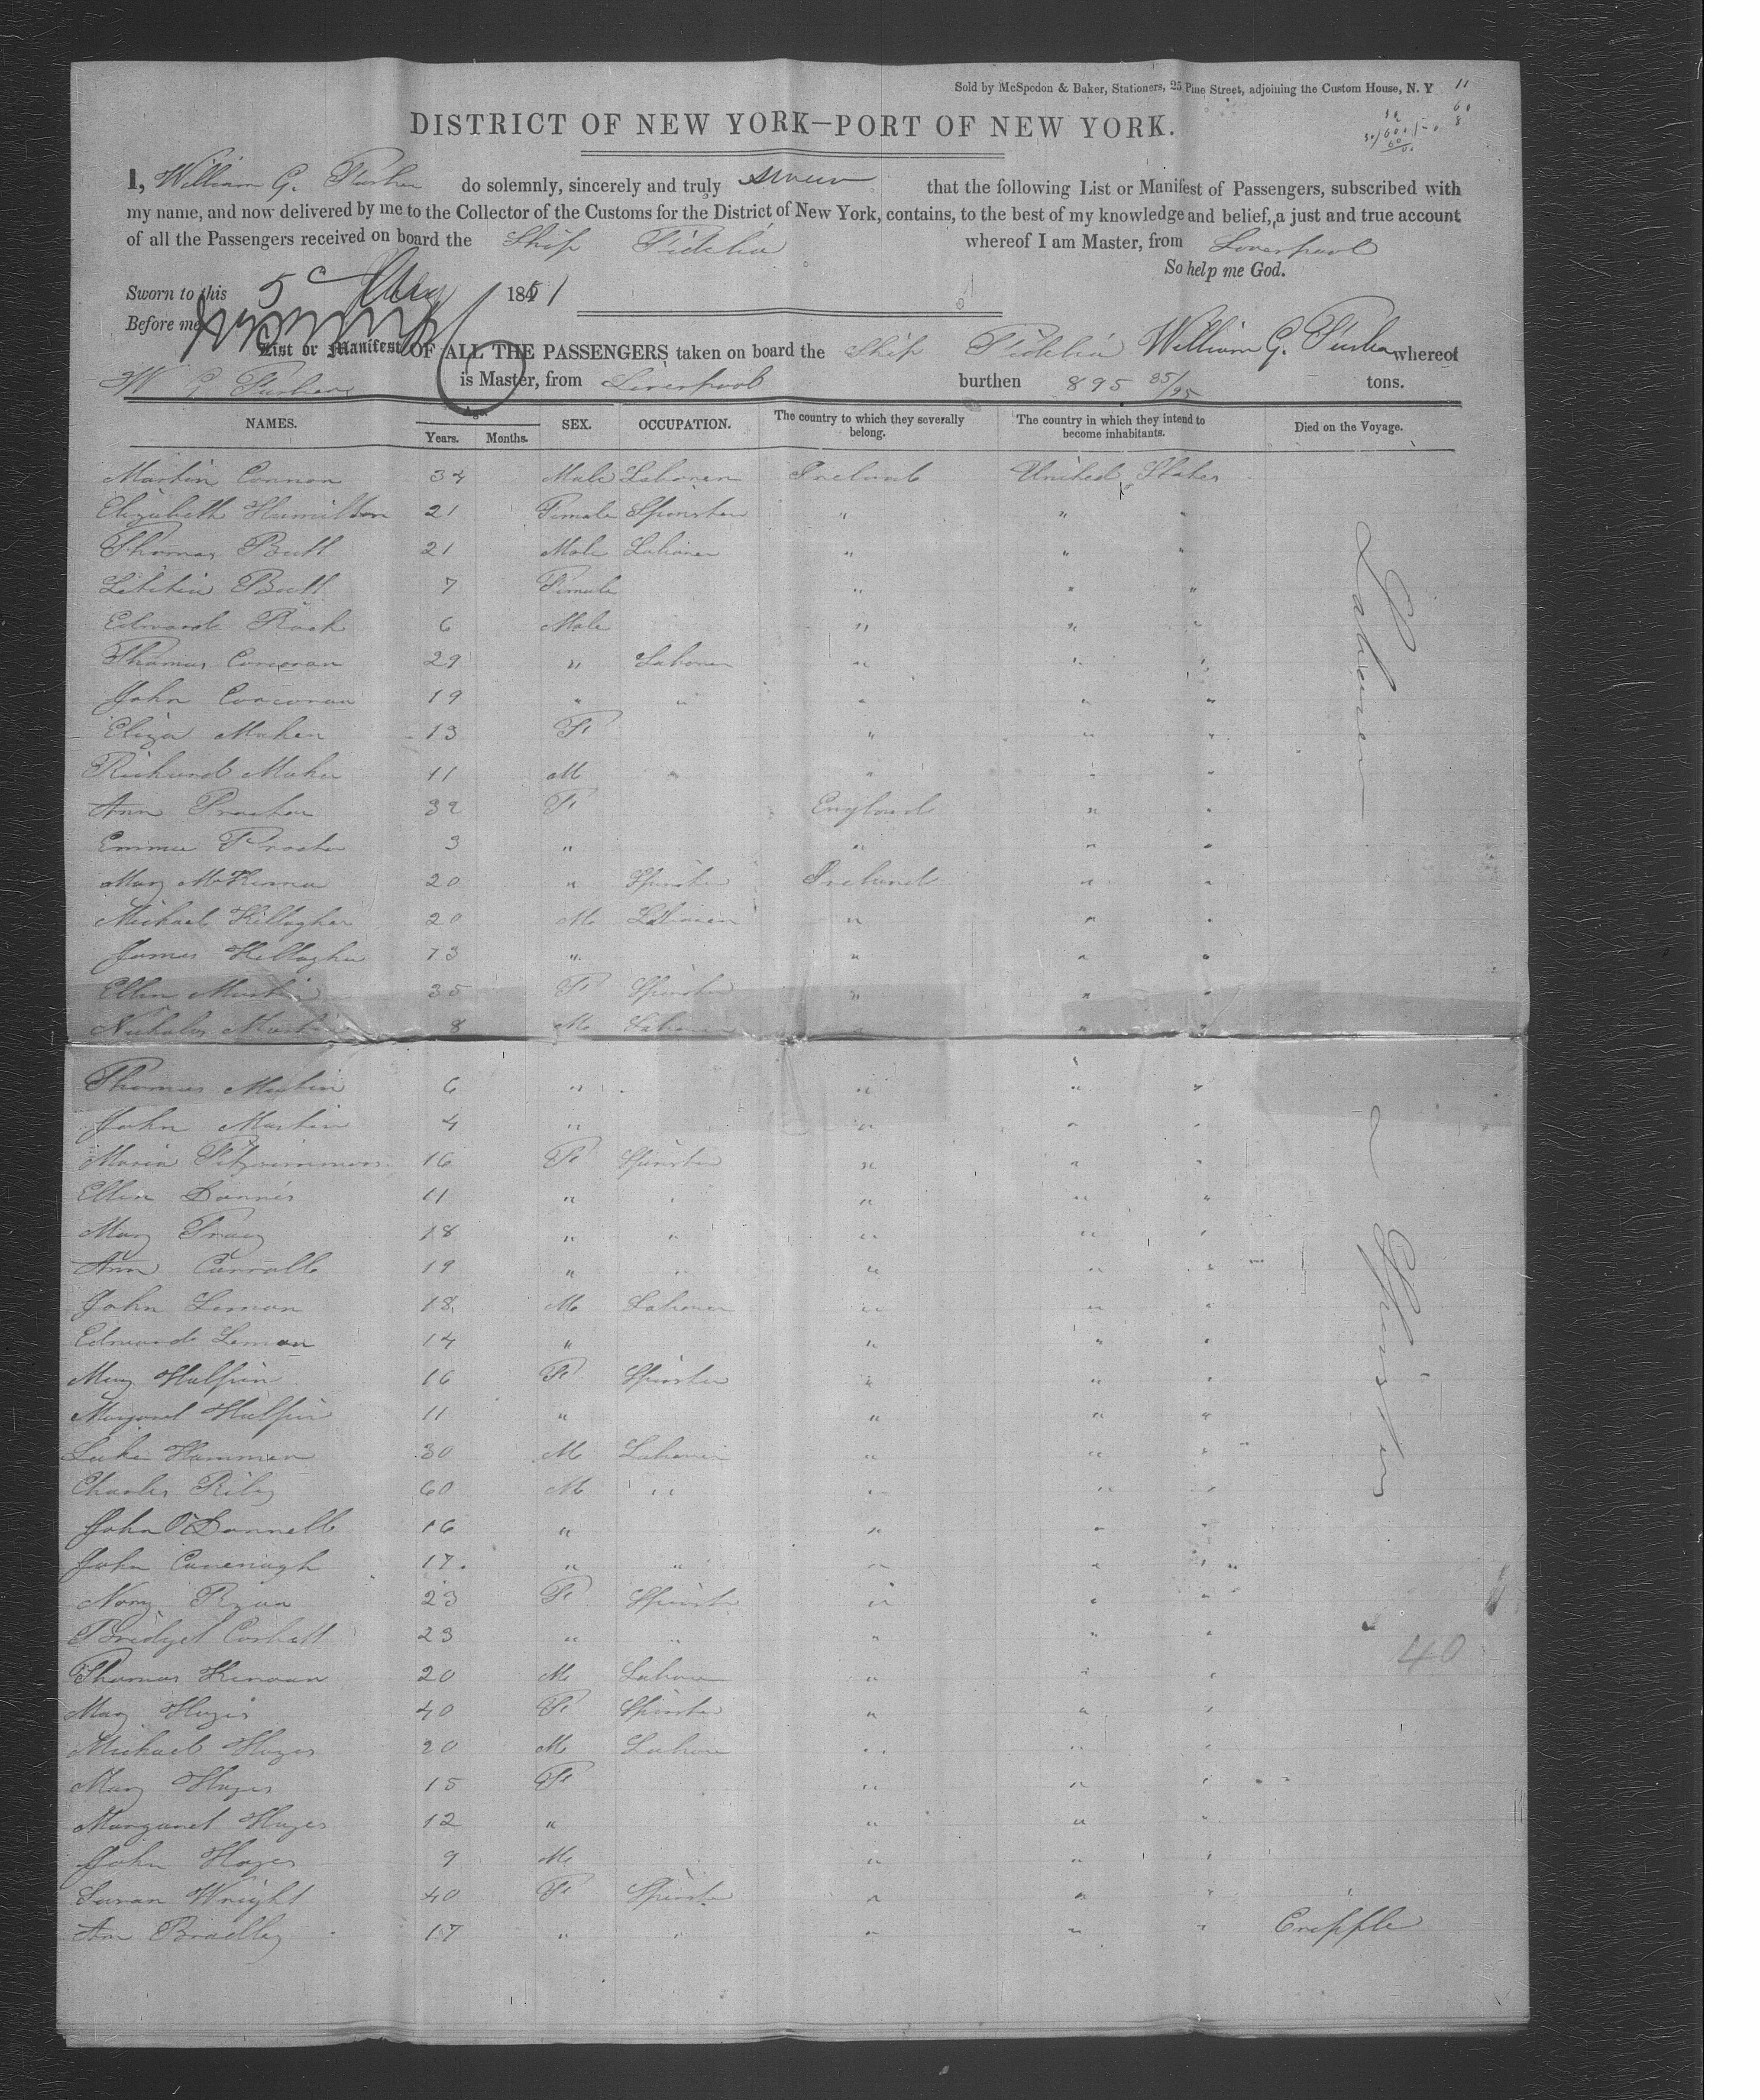 Sold by McSpedon & Baker, Stationers, 25 Pine Street, adjoining the Custom House, N. Y
DISTRICT OF NEW YORK—PORT OF NEW YORK.
I, William G. Furber do solemnly, sincerely and truly swear that the following List or Manifest of Passengers, subscribed with
my name, and now delivered by me to the Collector of the Customs for the District of New York, contains, to the best of my knowledge and belief, a just and true account
of all the Passengers received on board the Ship Fidelia whereof I am Master, from Liverpool
So help me God.
Sworn to this 5 1851
Before me
List or Manifest OF ALL THE PASSENGERS taken on board the Ship Fidelia William G. Furber whereof
W G Furber is Master, from Liverpool burthen 895 35/95 tons.
NAMES. Age Years. Months. SEX. OCCUPATION. The country to which they severally belong. The country in which they intend to become inhabitants. Died on the Voyage.
Martin Connon 34 Male Laborer Ireland United States
Elizabeth Hamilton 21 Female Spinster " " "
Thomas Butl 21 Male Laborer " " "
Letitia Butl 7 Female " " "
Edward Rock 6 Male " " "
Thomas Corcoran 29 " Laborer " " "
John Corcoran 19 " " " " "
Eliza Maher 13 F " " "
Richard Maher 11 M " " " "
Ann Procter 32 F England " "
Emma Procter 3 " " " "
Mary McKenna 20 " Spinster Ireland " "
Michael Killagher 20 M Laborer " " "
James Killagher 13 " " " "
Ellen Martin 35 F Spinster " " "
Nicholas Martin 8 M Laborer " " "
Thomas Martin 6 " " " "
John Martin 4 " " " "
Maria Fitzsimmons 16 F Spinster " " "
Ellen Dannis 11 " " " " "
Mary Tracy 18 " " " " "
Ann Carroll 19 " " " " "
John Leman 18 M Laborer " " "
Edward Leman 14 " " " "
Mary Halpin 16 F Spinster " " "
Margaret Halpin 11 " " " "
Luke Hammon 30 M Laborer " " "
Charles Rily 60 M " " " "
John O'Donnell 16 " " " "
John Cavenagh 17 " " " " "
Nory Ryan 23 F Spinster " " "
Bridget Corbett 23 " " " " "
Thomas Kenvan 20 M Labore " " "
Mary Hayes 40 F Spinster " " "
Michael Hayes 20 M Labore " " "
Mary Hayes 15 F " " "
Margaret Hayes 12 " " " "
John Hayes 9 M " " "
Saran Wright 40 F Spinster " " "
Ann Bradley 17 " " " " " Cripple
Laborer
Spinster
40